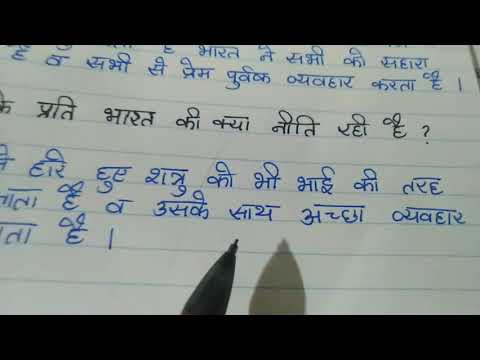 है भारत ने सभी को सहारा
है व सभी से प्रेम पुर्वक व्यवहार करता है ।
के प्रति भारत की क्या नीति रही है ?
ने हारे हुए शत्रु को भी भाई की तरह
है व उसके साथ अच्छा व्यवहार
है ।